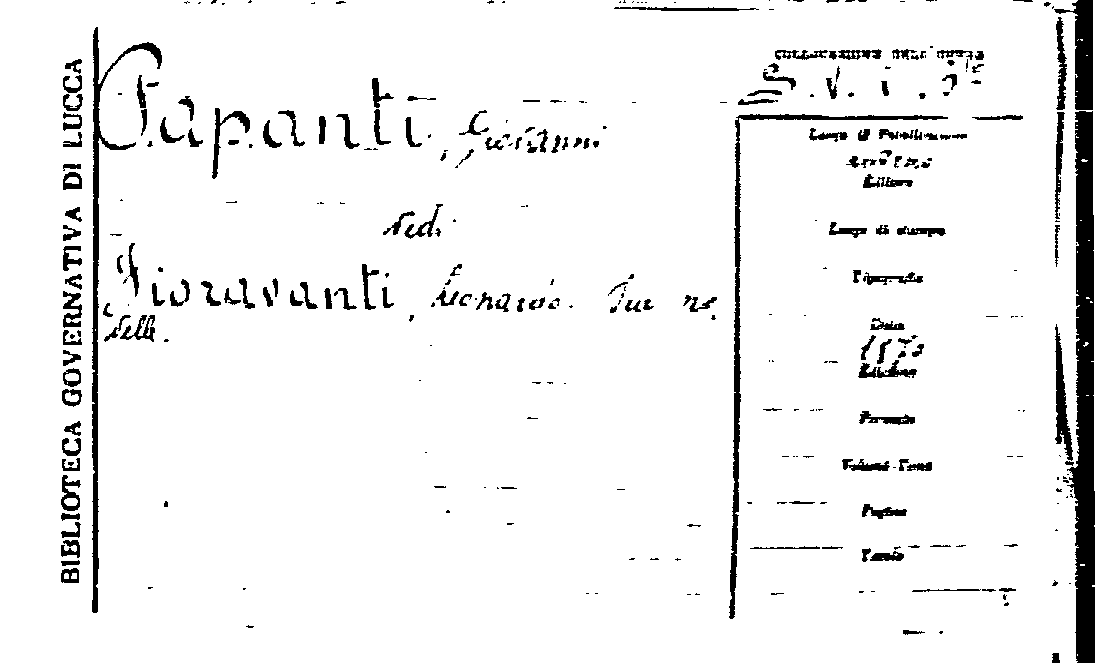 BIBLIOTECA GOVERNATIVA DI LUCCA
Papanti, Giovanni
Vedi
Fioravanti, Leonardo. Due no
velle.
COLLOCAZIONE DELL'OPERA
Luogo di Pubblicazione
Editore
Luogo di stampa
Tipografia
Data
Edizione
Formato
Volumi-Tomi
Pagine
Tavole